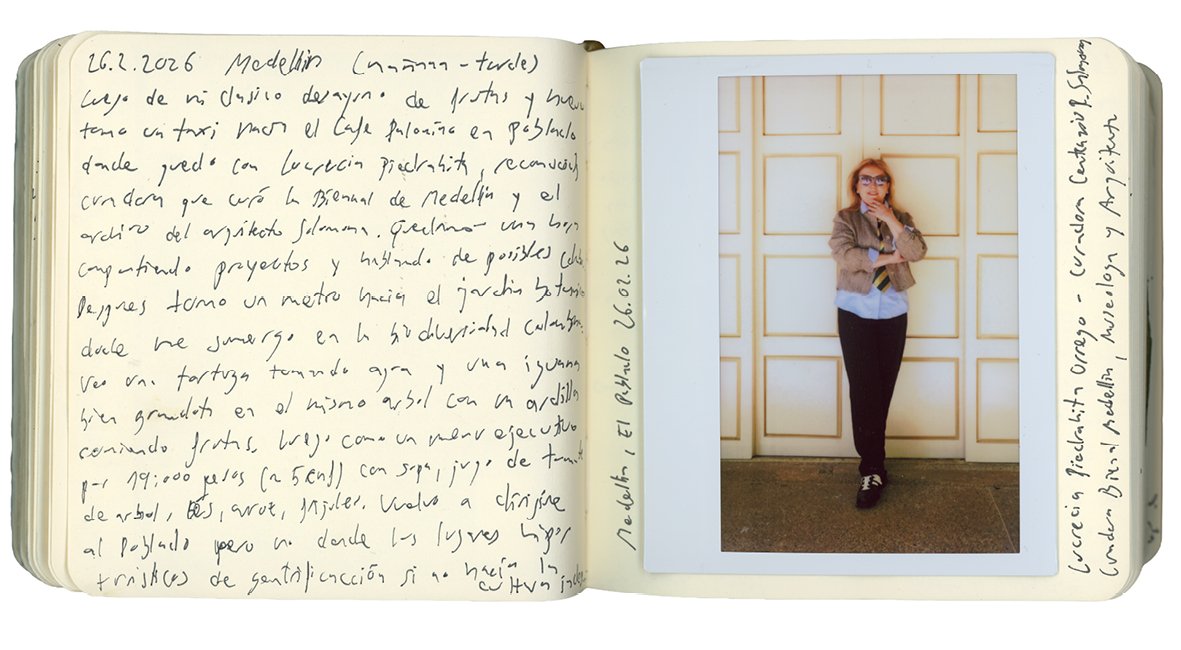 26.2.2026 Medellin (mañana - tarde)
luego de mi clasico desayuno de frutas y huevo
tomo un taxi hacia el Cafe Palomino en Poblado
donde quedo con Lucrecia Piedrahita, reconocida
curadora que curó la Bienal de Medellin y el
archivo del arquitecto Salmona. Quedamos una hora
compartiendo proyectos y hablando de posibles
Despues tomo un metro hacia el jardin botanico
donde me sumergo en la biodiversidad Colombiana.
veo una tortuga tomando agua y una iguana
bien grandota en el mismo arbol con un ardilla
comiendo frutas. luego como un menu ejecutivo
por 19.000 pesos (≈ 5 eur) con sopa, jugo de tomate
de arbol, res, arroz, frijoles. Vuelvo a dirigirme
al Poblado pero no donde los lugares hiper
turisticos de gentrificacción si no hacia la
cultura
Medellin, El Poblado 26.02.26
Lucrecia Piedrahita Orrego - Curadora Centenario R. Salmona
Curadora Bienal Medellin, Museologa y Arquitecta